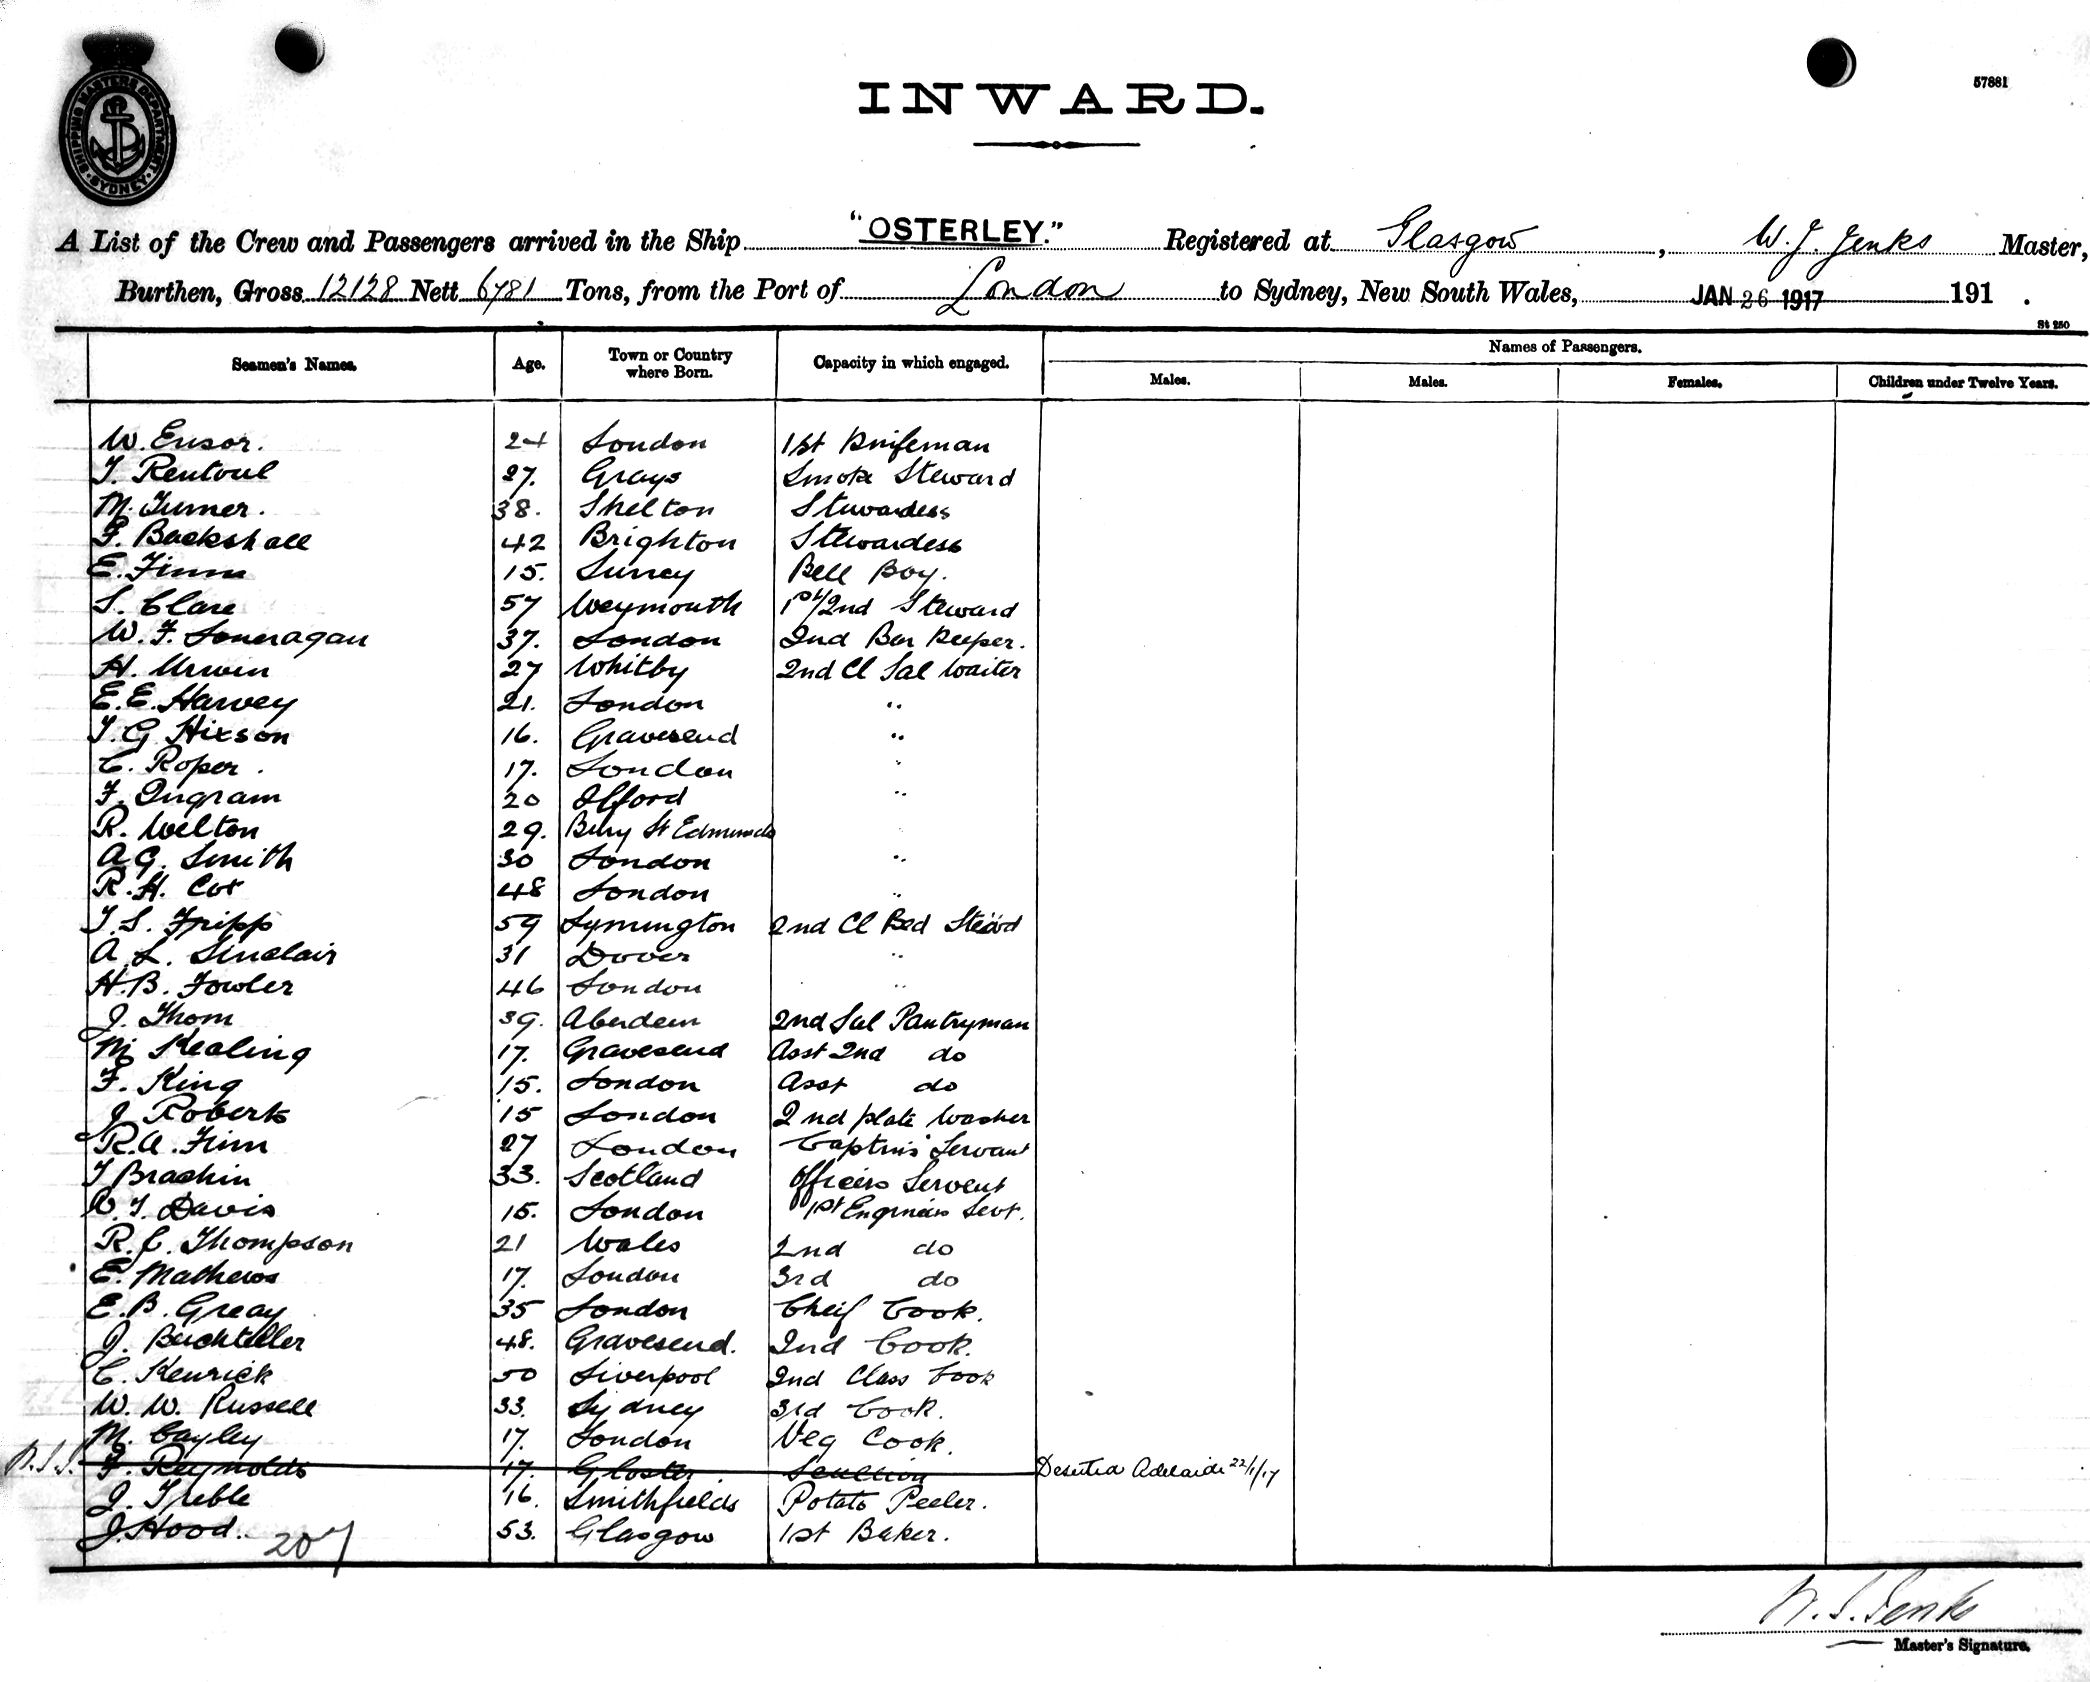 SHIPPING MASTERS DEPARTMENT · SYDNEY ·
INWARD.
57881
A List of the Crew and Passengers arrived in the Ship "OSTERLEY." Registered at Glasgow, W. J. Jenks Master,
Burthen, Gross 12128 Nett 6781 Tons, from the Port of London to Sydney, New South Wales, JAN 26 1917 191 .
St 250
Seamen's Names. Age. Town or Country where Born. Capacity in which engaged. Names of Passengers.
Males. Males. Females. Children under Twelve Years.
W. Ensor. 24 London 1st Knifeman
T. Rentoul 27. Grays Smoke Steward
M. Turner. 38. Shelton Stewardess
F. Backshall 42 Brighton Stewardess
E. Finn 15. Surrey Bell Boy.
S. Clare 57 Weymouth 1st/2nd Steward
W. F. Soneragan 37. London 2nd Bar Keeper.
H. Urwin 27 Whitby 2nd Cl Sal Waiter
E. E. Harvey 21. London "
T. G Hixson 16. Gravesend "
C. Roper. 17. London "
F. Ingram 20 Ilford "
R. Welton 29. Bury St Edmunds "
A G. Smith 30 London "
R. H. Cox 48 London "
T. S. Fripp 59 Lymington 2nd Cl Bed Steward
A. L. Sinclair 31 Dover "
H. B. Fowler 46 London "
J. Thom 39. Aberdeen 2nd Sal Pantryman
M Kealing 17. Gravesend Asst 2nd do
F. King 15. London Asst do
J Roberts 15 London 2nd plate Washer
R. A. Finn 27 London Captins' Servant
T Brachin 33. Scotland Officers Servent
W. T. Davis 15. London 1st Engineers Sevt.
R. C. Thompson 21 Wales 2nd do
E. Mathews 17. London 3rd do
E. B. Greay 35 London Cheif Cook.
J. Bechteller 48. Gravesend. 2nd Cook.
C. Kenrick 50 Liverpool 2nd Class Cook
W. W. Russell 33. Sydney 3rd Cook.
M. Cayley 17. London Veg Cook.
F. Reynolds 17. Gloster. Scullion Deserted Adelaide 22/1/17
J. Treble 16. Smithfields Potato Peeler.
J. Hood. 53. Glasgow 1st Baker.
207
W. J. Jenks
Master's Signature.